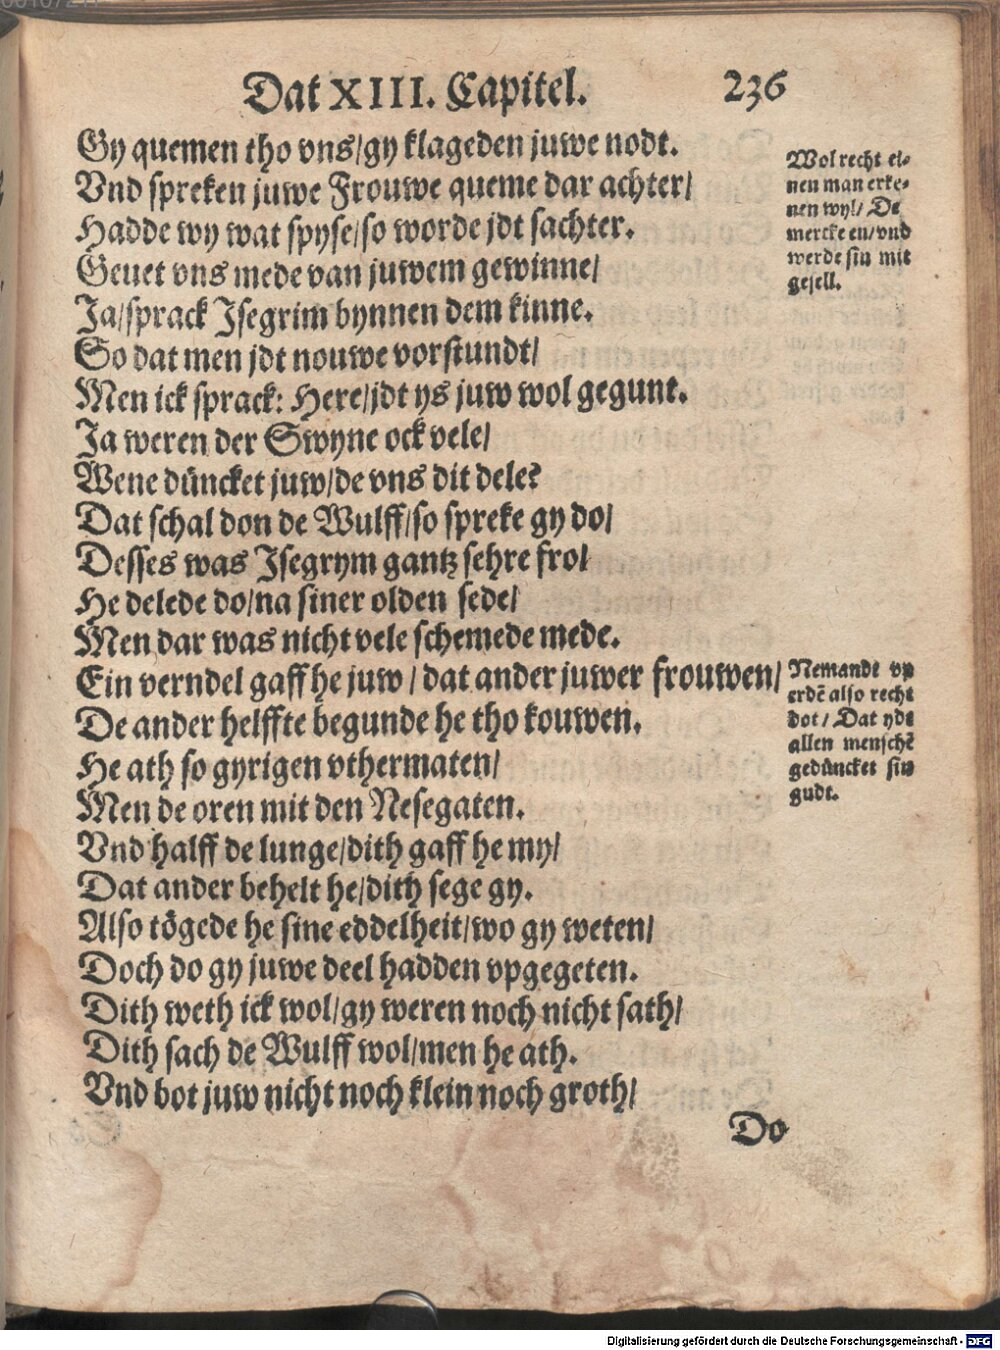 Dat XIII. Capitel.
236
Gy quemen tho vns/gy klageden juwe nodt.
Vnd spreken juwe Frouwe queme dar achter/
Hadde wy wat spyse/so worde jdt sachter.
Geuet vns mede van juwem gewinne/
Ja/sprack Isegrim bynnen dem kinne.
So dat men jdt nouwe vorstundt/
Men ick sprack: Here/jdt ys juw wol gegunt.
Ja weren der Swyne ock vele/
Wene düncket juw/de vns dit dele?
Dat schal don de Wulff/so spreke gy do/
Desses was Isegrym gantz sehre fro/
He delede do/na siner olden sede/
Men dar was nicht vele schemede mede.
Ein verndel gaff he juw / dat ander juwer frouwen/
De ander helffte begunde he tho kouwen.
He ath so gyrigen vthermaten/
Men de oren mit den Nesegaten.
Vnd halff de lunge/dith gaff he my/
Dat ander behelt he/dith sege gy.
Also tögede he sine eddelheit/wo gy weten/
Doch do gy juwe deel hadden vpgegeten.
Dith weth ick wol/gy weren noch nicht sath/
Dith sach de Wulff wol/men he ath.
Vnd bot juw nicht noch klein noch groth/
Do
Wol recht ei-
nen man erke-
nen wyl/ De
mercke en/vnd
werde sin mit
gesell.
Nemandt vp
erdē also recht
dot / Dat yds
allen menschē
gedüncket sin
gudt.
Digitalisierung gefördert durch die Deutsche Forschungsgemeinschaft - DFG